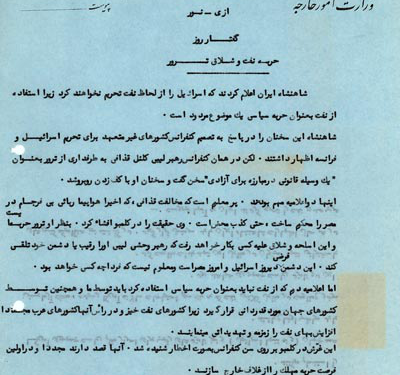 وزارت امور خارجه
پیوست
ازی - نور
گفتار روز
حربه نفت و شلاق ترور
شاهنشاه ایران اعلام کردند که اسرائیل را از لحاظ نفت تحریم نخواهند کرد زیرا استفاده
از نفت بعنوان حربه سیاسی یک موضوع مردود است .
شاهنشاه این سخنان را در پاسخ به تصمیم کنفرانس کشورهای غیر متعهد برای تحریم اسرائیل و
فرانسه اظهار داشتند . لکن در همان کنفرانس رهبر لیبی کلنل قذافی به طرفداری از ترور بعنوان
" یک وسیله قانونی در مبارزه برای آزادی " سخن گفت و سخنان او با کف زدن روبرو شد .
اینها دو اعلامیه مهم بودند . پر معلوم است که مخالفت قذافی ، که اخیرا هواپیما ربائی بی فرجام در
مصر را محکوم ساخت ، حتی کذب محض است . وی حقیقت را در کلمبو افشاء کرد . بنظر او ترور حربه
و این اسلحه و شلاق علیه کسی بکار خواهد رفت که رهبر وحشی لیبی او را رقیب یا دشمن خود تلقی
فرضی
کند . این دشمن دیروز اسرائیل و امروز مصر است و معلوم نیست که فردا چه کسی خواهد بود .
اما اعلامیه دیم که از نفت نباید بعنوان حربه سیاسی استفاده کرد باید توسط ما و همچنین توسط
کشورهای جهان مورد قدردانی قرار گیرد زیرا کشورهای نفت خیز و در راس آنها کشورهای عرب مجددا
افزایش بهای نفت را زمزمه و تهدیداتی مینمایند .
این غرش در کلمبو بر روی سن کنفرانس بصورت اخطار شنیده شد . آنها قصد دارند مجددا و در اولین
فرصت حربه مهلک را از غلاف خارج سازند .